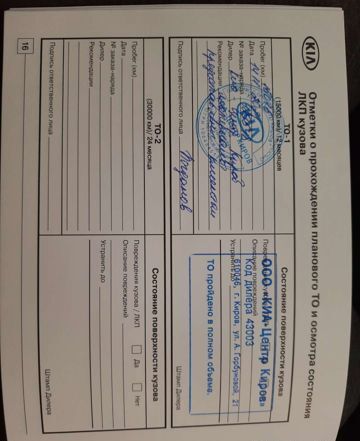 KIA
Отметки о прохождении планового ТО и осмотра состояния
ЛКП кузова
ТО-1
(15000 км) / 12 месяцев
Пробег (км)
Дата
№ заказа-наряда
Дилер
Рекомендации
Подпись ответственного лица
KIA
КИРОВ
Состояние поверхности кузова
Описание повреждений
Устранить до
Штамп Дилера
ООО «КИА-Центр Киров»
Код дилера 43003
610046, г. Киров, ул. А. Горбуновой, 21
ТО пройдено в полном объеме.
ТО-2
(30000 км) / 24 месяца
Пробег (км)
Дата
№ заказа-наряда
Дилер
Рекомендации
Подпись ответственного лица
Состояние поверхности кузова
Повреждения кузова / ЛКП
Да
Нет
Описание повреждений
Устранить до
Штамп Дилера
16